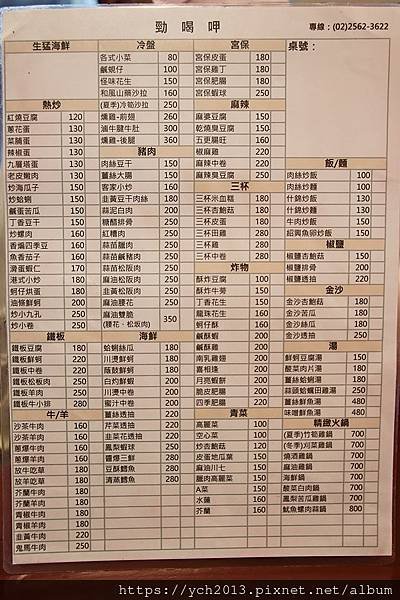 勁喝呷
專線：(02)2562-3622
生猛海鮮
熱炒
紅燒豆腐 120
蔥花蛋 130
菜脯蛋 130
辣椒蛋 130
九層塔蛋 130
老皮嫩肉 130
炒海瓜子 150
炒蛤蜊 150
鹹蛋苦瓜 150
丁香花干 150
炒螺肉 160
香煸四季豆 160
魚香茄子 160
滑蛋蝦仁 170
港式小炒 180
蚵仔烘蛋 180
油條鮮蚵 200
炒小九孔 250
炒小卷 250
鐵板
鐵板豆腐 180
鐵板鮮蚵 220
鐵板中卷 220
鐵板松板肉 250
鐵板羊肉 250
鐵板牛小排 280
牛/羊
沙茶牛肉 160
沙茶羊肉 160
蔥爆牛肉 160
蔥爆羊肉 160
放牛吃草 180
放羊吃草 180
芥蘭牛肉 180
芥蘭羊肉 180
青椒牛肉 180
青椒羊肉 180
韭黃牛肉 220
鬼馬牛肉 250
冷盤
各式小菜 80
鹹蜆仔 100
怪味花生 150
和風山藥沙拉 160
(夏季)冷筍沙拉 250
燻雞-前翅 260
滷牛腱牛肚 300
燻雞-後腿 360
豬肉
肉絲豆干 150
薑絲大腸 150
客家小炒 160
韭黃豆干肉絲 180
蒜泥白肉 200
糖醋排骨 250
紅糟肉 250
蒜苗臘肉 250
蒜苗鹹豬肉 250
蒜苗松阪肉 250
麻油松阪肉 250
韭黃松阪肉 250
麻油腰花 250
麻油雙脆 (腰花、松坂肉) 350
海鮮
蛤蜊絲瓜 180
川燙鮮蚵 180
蔭鼓鮮蚵 180
白灼鮮蝦 200
川燙中卷 200
蜜汁中卷 200
薑絲透抽 220
芹菜透抽 220
韭菜花透抽 220
鳳梨蝦球 250
醬爆三鮮 280
豆酥鱈魚 280
清蒸鱈魚 280
宮保
宮保皮蛋 180
宮保雞丁 180
宮保肥腸 180
宮保蝦球 250
麻辣
麻婆豆腐 150
乾燒臭豆腐 150
五更腸旺 160
椒麻雞 220
麻辣中卷 220
麻辣臭豆腐 250
三杯
三杯米血糕 180
三杯杏鮑菇 180
三杯皮蛋 180
三杯田雞 250
三杯雞 280
三杯中卷 280
炸物
酥炸豆腐 100
酥炸牛蒡 150
丁香花生 150
龍珠花生 160
蚵仔酥 160
鹹酥蝦 200
鹹酥雞 200
南乳雞翅 200
喜相逢 200
月亮蝦餅 200
脆皮肥腸 200
四季肥腸 220
青菜
高麗菜 100
空心菜 100
炒杏鮑菇 120
皮蛋地瓜葉 150
麻油川七 150
臘肉高麗菜 150
A菜 150
水蓮 160
芥蘭 160
桌號：
飯/麵
肉絲炒飯 100
肉絲炒麵 100
什錦炒飯 130
什錦炒麵 130
牛肉炒飯 150
紹興魚卵炒飯 150
椒鹽
椒鹽杏鮑菇 150
椒鹽排骨 200
椒鹽透抽 220
金沙
金沙杏鮑菇 180
金沙苦瓜 180
金沙絲瓜 180
金沙透抽 250
湯
鮮蚵豆腐湯 150
酸菜肉片湯 180
薑絲蛤蜊湯 180
蒜頭蛤蠣田雞湯 250
薑絲鮮魚湯 480
味噌鮮魚湯 480
精緻火鍋
(夏季)竹筍雞鍋 700
(冬季)刈菜雞鍋 700
燒酒雞鍋 700
麻油雞鍋 700
海鮮鍋 700
酸菜白肉鍋 700
鳳梨苦瓜雞鍋 700
魷魚螺肉蒜鍋 800
https://ych2013.pixnet.net/album